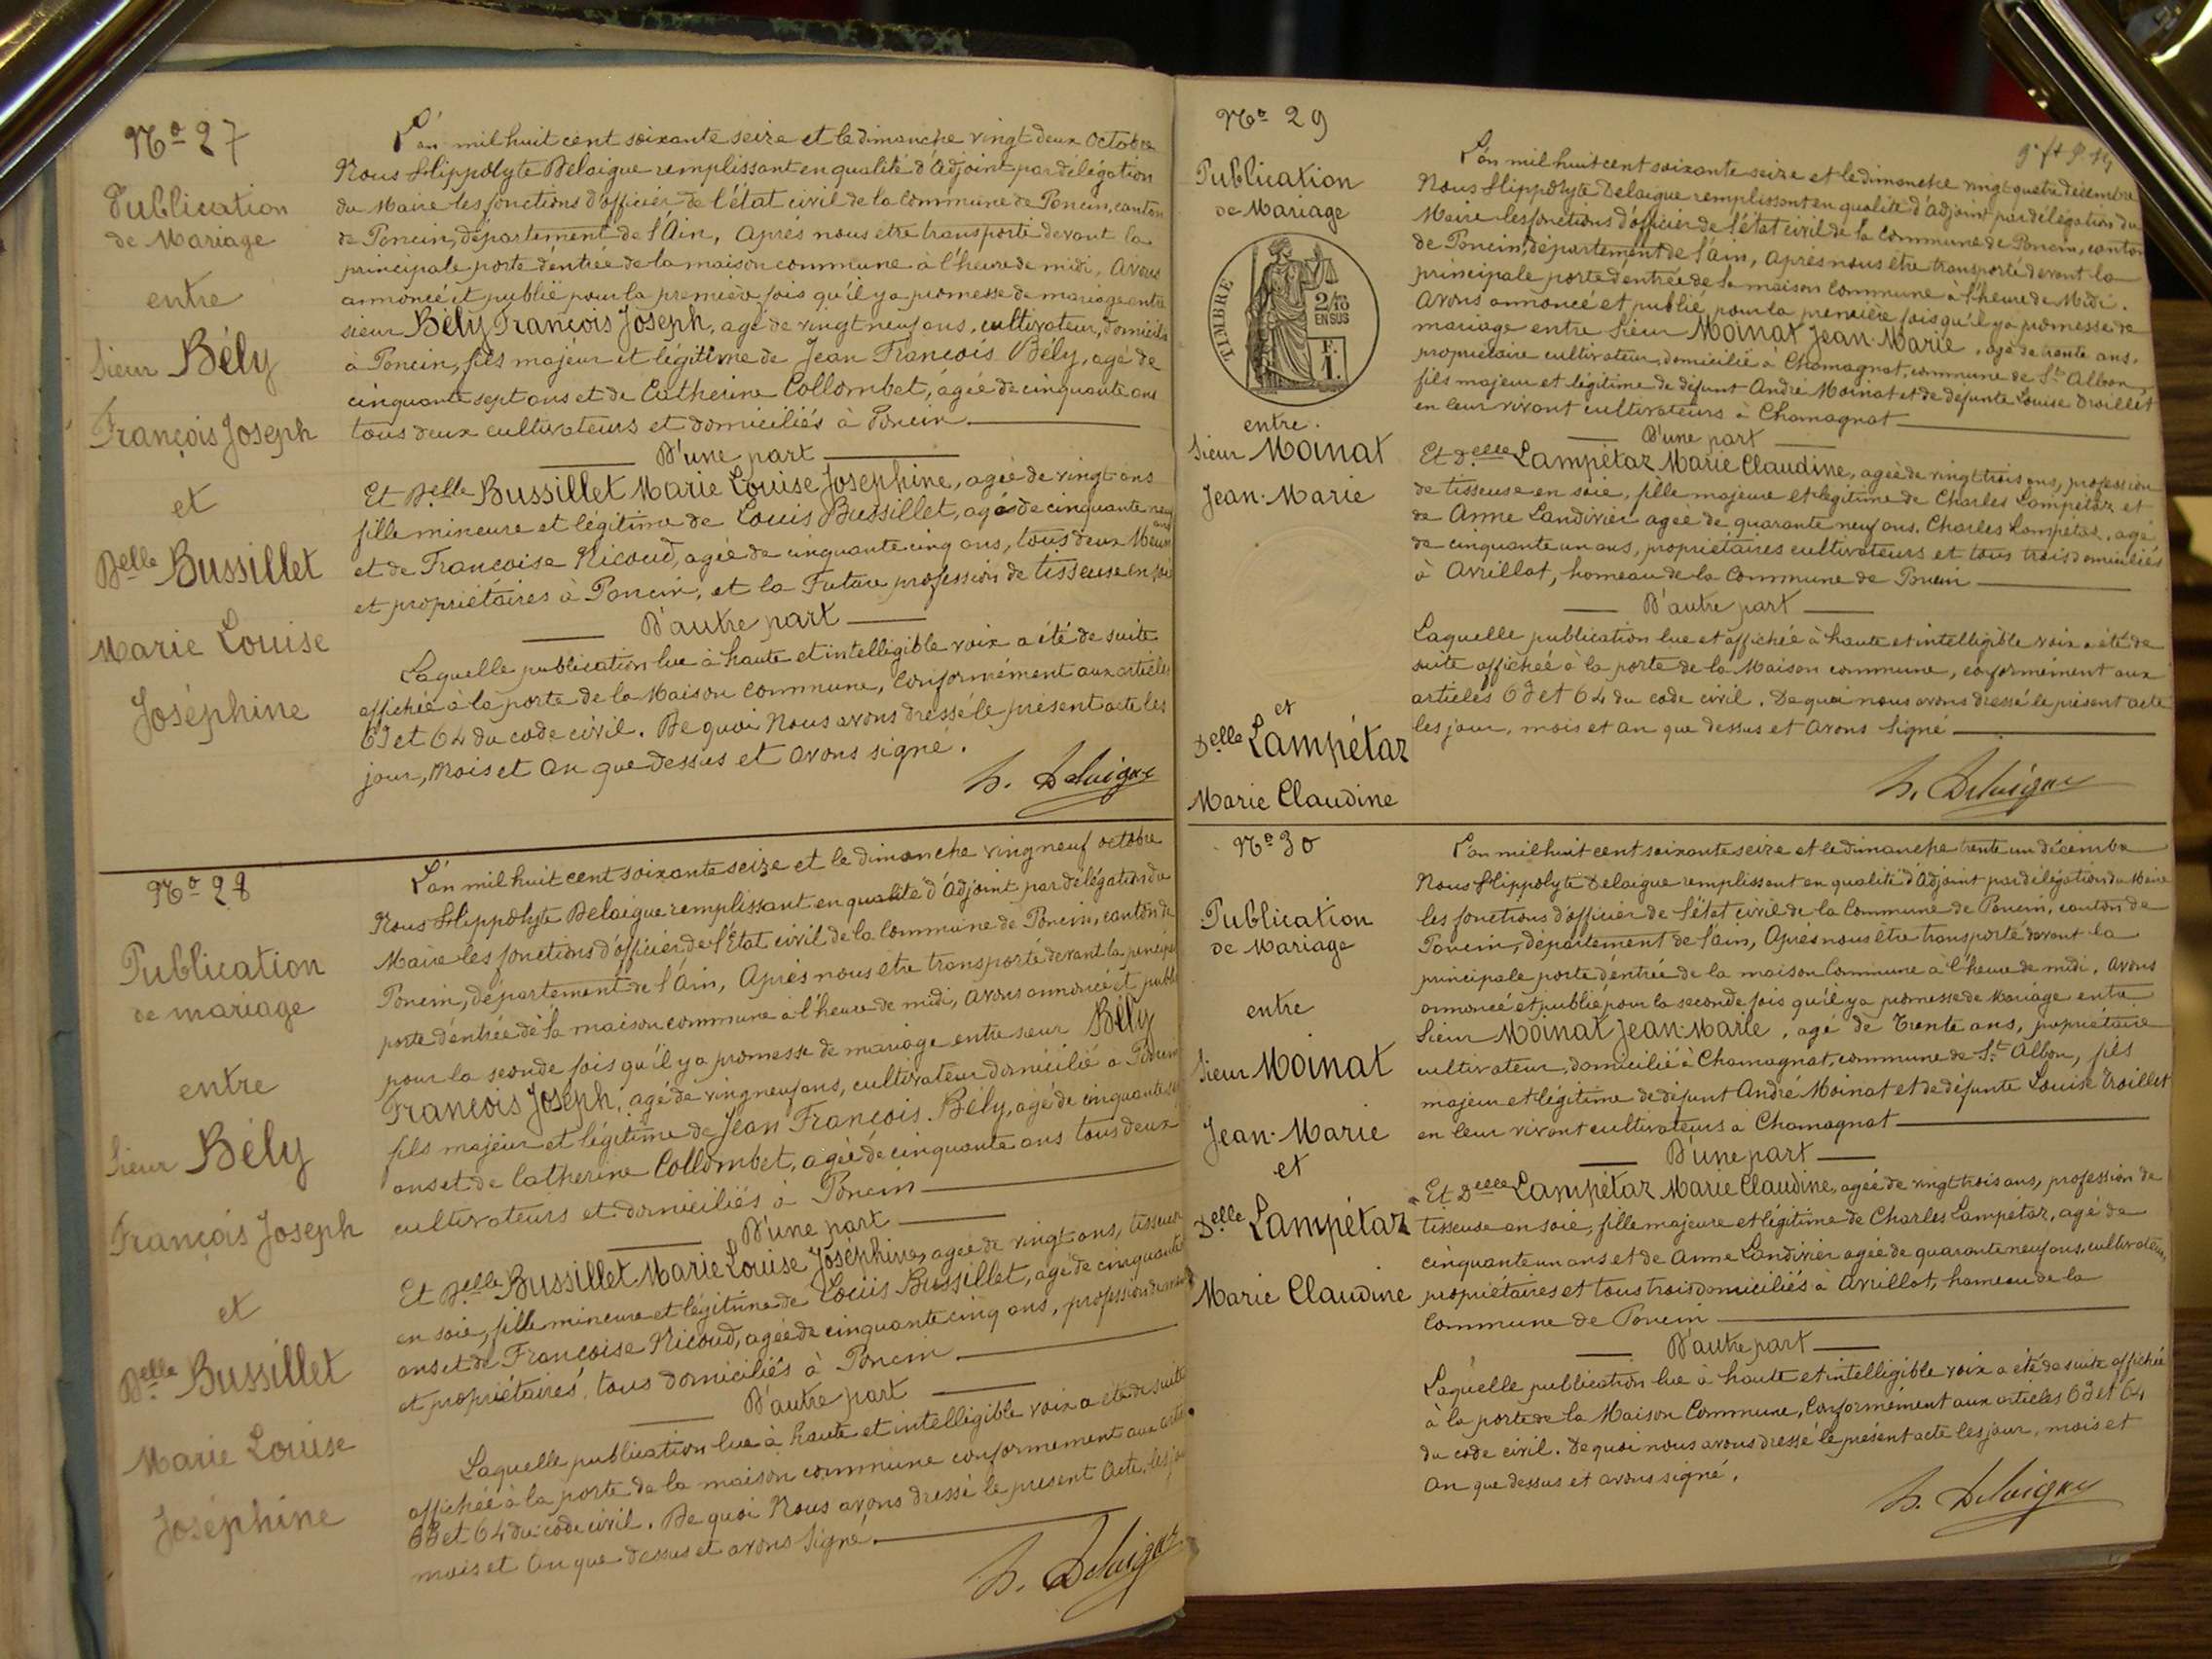 Nº 27
Publication
de Mariage
entre
Sieur Bély
François Joseph
et
Delle Bussillet
Marie Louise
Joséphine
L'an mil huit cent soixante seize et le dimanche vingt deux Octobre
Nous Hippolyte Delaigue remplissant en qualité d'Adjoint par délégation
du Maire les fonctions d'officier de l'état civil de la Commune de Poncin, canton
de Poncin, département de l'Ain, Après nous etre transporté devant la
principale porte d'entrée de la maison commune à l'heure de midi, Avons
annoncé et publié pour la première fois qu'il y a promesse de mariage entre
sieur Bély François Joseph, agé de vingt neuf ans, cultivateur, domicilié
à Poncin, fils majeur et légitime de Jean François Bély, agé de
cinquante sept ans et de Catherine Collombet, agée de cinquante ans
tous deux cultivateurs et domiciliés à Poncin
D'une part
Et Delle Bussillet Marie Louise Josephine, agée de vingt ans
fille mineure et légitime de Louis Bussillet, agé de cinquante neuf ans
et de Francoise Nicoud, agée de cinquante cinq ans, tous deux
et propriétaires à Poncin, et la Future profession de tisseuse en soie
D'autre part
Laquelle publication lue à haute et intelligible voix a été de suite
affichée à la porte de la Maison Commune, Conformément aux articles
63 et 64 du code civil. De quoi Nous avons dressé le présent acte les
jour, Mois et An que dessus et avons signé.
H. Delaigue
Nº 28
Publication
de mariage
entre
Sieur Bély
François Joseph
et
Delle Bussillet
Marie Louise
Joséphine
L'an mil huit cent soixante seize et le dimanche ving neuf octobre
Nous Hippolyte Delaigue remplissant en qualité d'Adjoint par délégation du
Maire les fonctions d'officier de l'Etat civil de la Commune de Poncin, canton de
Poncin, département de l'Ain, Après nous etre transporté devant la
porte d'entrée de la maison commune à l'heure de midi, avons annoncé et
pour la seconde fois qu'il y a promesse de mariage entre sieur Bély
François Joseph, agé de ving neuf ans, cultivateur domicilié à Poncin
fils majeur et légitime de Jean François Bély, agé de cinquante
ans et de Catherine Collombet, agée de cinquante ans tous deux
cultivateurs et domiciliés à Poncin
D'une part
Et Delle Bussillet Marie Louise Joséphine, agée de vingt ans, tisseuse
en soie, fille mineure et légitime de Louis Bussillet, agé de cinquante
ans et de Françoise Nicoud, agée de cinquante cinq ans, profession de
et propriétaires, tous domiciliés à Poncin
D'autre part
Laquelle publication lue à haute et intelligible voix a été de suite
affichée à la porte de la maison commune conformement aux
63 et 64 du code civil. De quoi Nous avons dressé le present Acte, les
mois et An que dessus et avons signé.
H. Delaigue
Nº 29
Publication
de Mariage
TIMBRE
2/10
EN SUS
F.
1.
entre
Sieur Moinat
Jean-Marie
et
Delle Lampétaz
Marie Claudine
L'an mil huit cent soixante seize et le dimanche vingt quatre décembre
Nous Hippolyte Delaigue remplissant en qualité d'Adjoint par délégation du
Maire les fonctions d'officier de l'état civil de la Commune de Poncin, canton
de Poncin, département de l'ain, Après nous être transporté devant la
principale porte d'entrée de la maison Commune à l'heure de Midi.
Avons annoncé et publié, pour la première fois qu'il y a promesse de
mariage entre Sieur Moinat Jean-Marie, agé de trente ans,
propriétaire cultivateur, domicilié à Chamagnat, commune de St Albon,
fils majeur et légitime de défunt André Moinat et de défunte Louise Troillet
en leur vivant cultivateurs à Chamagnat
D'une part
Et Delle Lampétaz Marie Claudine, agée de vingt trois ans, profession
de tisseuse en soie, fille majeure et légitime de Charles Lampétaz et
de Anne Landivier agée de quarante neuf ans. Charles Lampétaz, agé
de cinquante un ans, propriétaires cultivateurs et tous trois domiciliés
à Avrillat, hameau de la Commune de Poncin
D'autre part
Laquelle publication lue et affichée à haute et intelligible voix a été de
suite affichée à la porte de la Maison commune, conformément aux
articles 63 et 64 du code civil. De quoi nous avons dressé le présent acte
les jour, mois et an que dessus et avons signé
H. Delaigue
Nº 30
Publication
de Mariage
entre
Sieur Moinat
Jean-Marie
et
Delle Lampétaz
Marie Claudine
L'an mil huit cent soixante seize et le dimanche trente un décembre
Nous Hippolyte Delaigue remplissant en qualité d'Adjoint par délégation du Maire
les fonctions d'officier de l'état civil de la Commune de Poncin, canton de
Poncin, département de l'ain, Après nous être transporté devant la
principale porte d'entrée de la maison Commune à l'heure de midi. Avons
annoncé et publié pour la seconde fois qu'il y a promesse de Mariage entre
Sieur Moinat Jean-Marie, agé de trente ans, propriétaire
cultivateur, domicilié à Chamagnat, commune de St Albon, fils
majeur et légitime de défunt André Moinat et de défunte Louise Troillet
en leur vivant cultivateurs à Chamagnat
D'une part
Et Delle Lampétaz Marie Claudine, agée de vingt trois ans, profession de
tisseuse en soie, fille majeure et légitime de Charles Lampétaz, agé de
cinquante un ans et de Anne Landivier agée de quarante neuf ans, cultivateurs
propriétaires et tous trois domiciliés à Avrillat, hameau de la
Commune de Poncin
D'autre part
Laquelle publication lue à haute et intelligible voix a été de suite affichée
à la porte de la Maison Commune, Conformément aux articles 63 et 64
du code civil. De quoi nous avons dressé le présent acte les jour, mois et
An que dessus et avons signé.
H. Delaigue